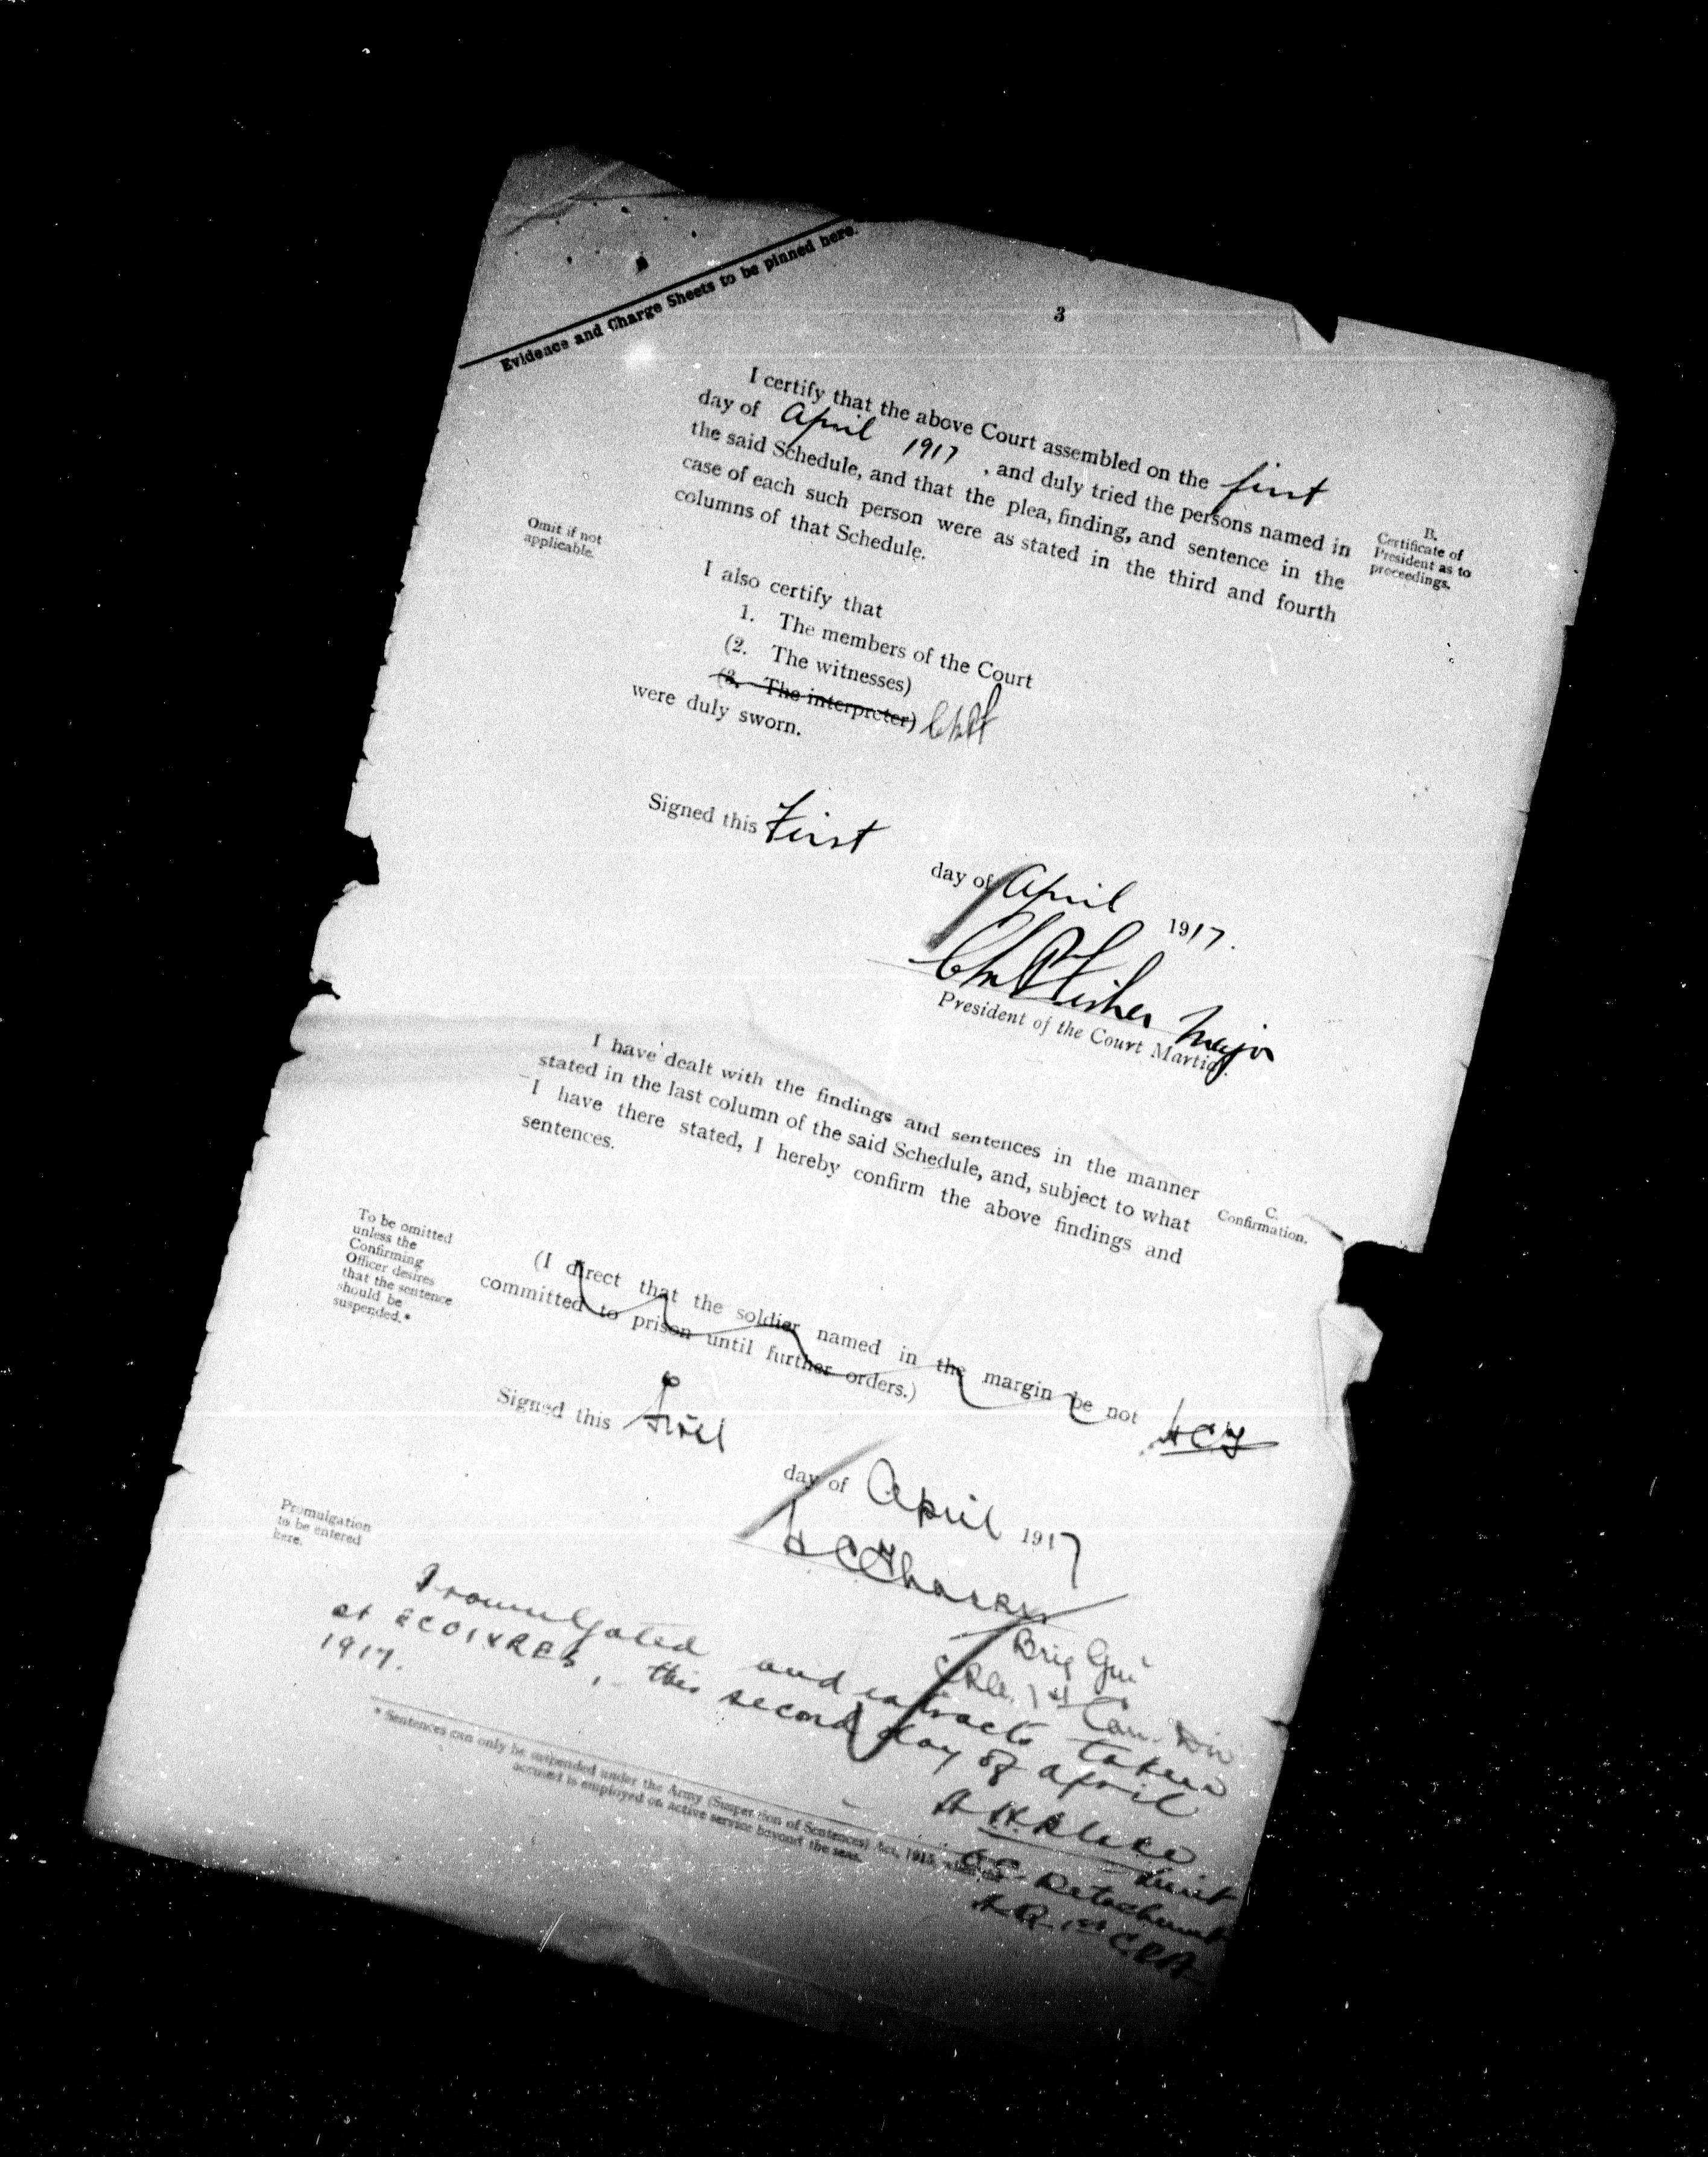 Evidence and Charge Sheets to be pinned here.
3
I certify that the above Court assembled on the first
day of April 1917, and duly tried the persons named in
the said Schedule, and that the plea, finding, and sentence in the
case of each such person were as stated in the third and fourth
columns of that Schedule.
B.
Certificate of
President as to
proceedings.
Omit if not
applicable.
I also certify that
1. The members of the Court
(2. The witnesses)
(3. The interpreter)
were duly sworn.
Signed this First
day of April 1917.
Fisher Major
President of the Court Martial.
I have dealt with the findings and sentences in the manner
stated in the last column of the said Schedule, and, subject to what
I have there stated, I hereby confirm the above findings and
sentences.
C.
Confirmation.
To be omitted
unless the
Confirming
Officer desires
that the sentence
should be
suspended.*
(I direct that the soldier named in the margin be not
committed to prison until further orders.)
Signed this first
day of April 1917
Brig Gen
1st Can. Div
Promulgation
to be entered
here.
Promulgated and extracts taken
at ECOIVRES, this second day of April
1917.
Lieut
O.C. Detachment
H.Q. 1st C.D.A.
* Sentences can only be suspended under the Army (Suspension of Sentences) Act, 1915,
accused is employed on active service beyond the seas.